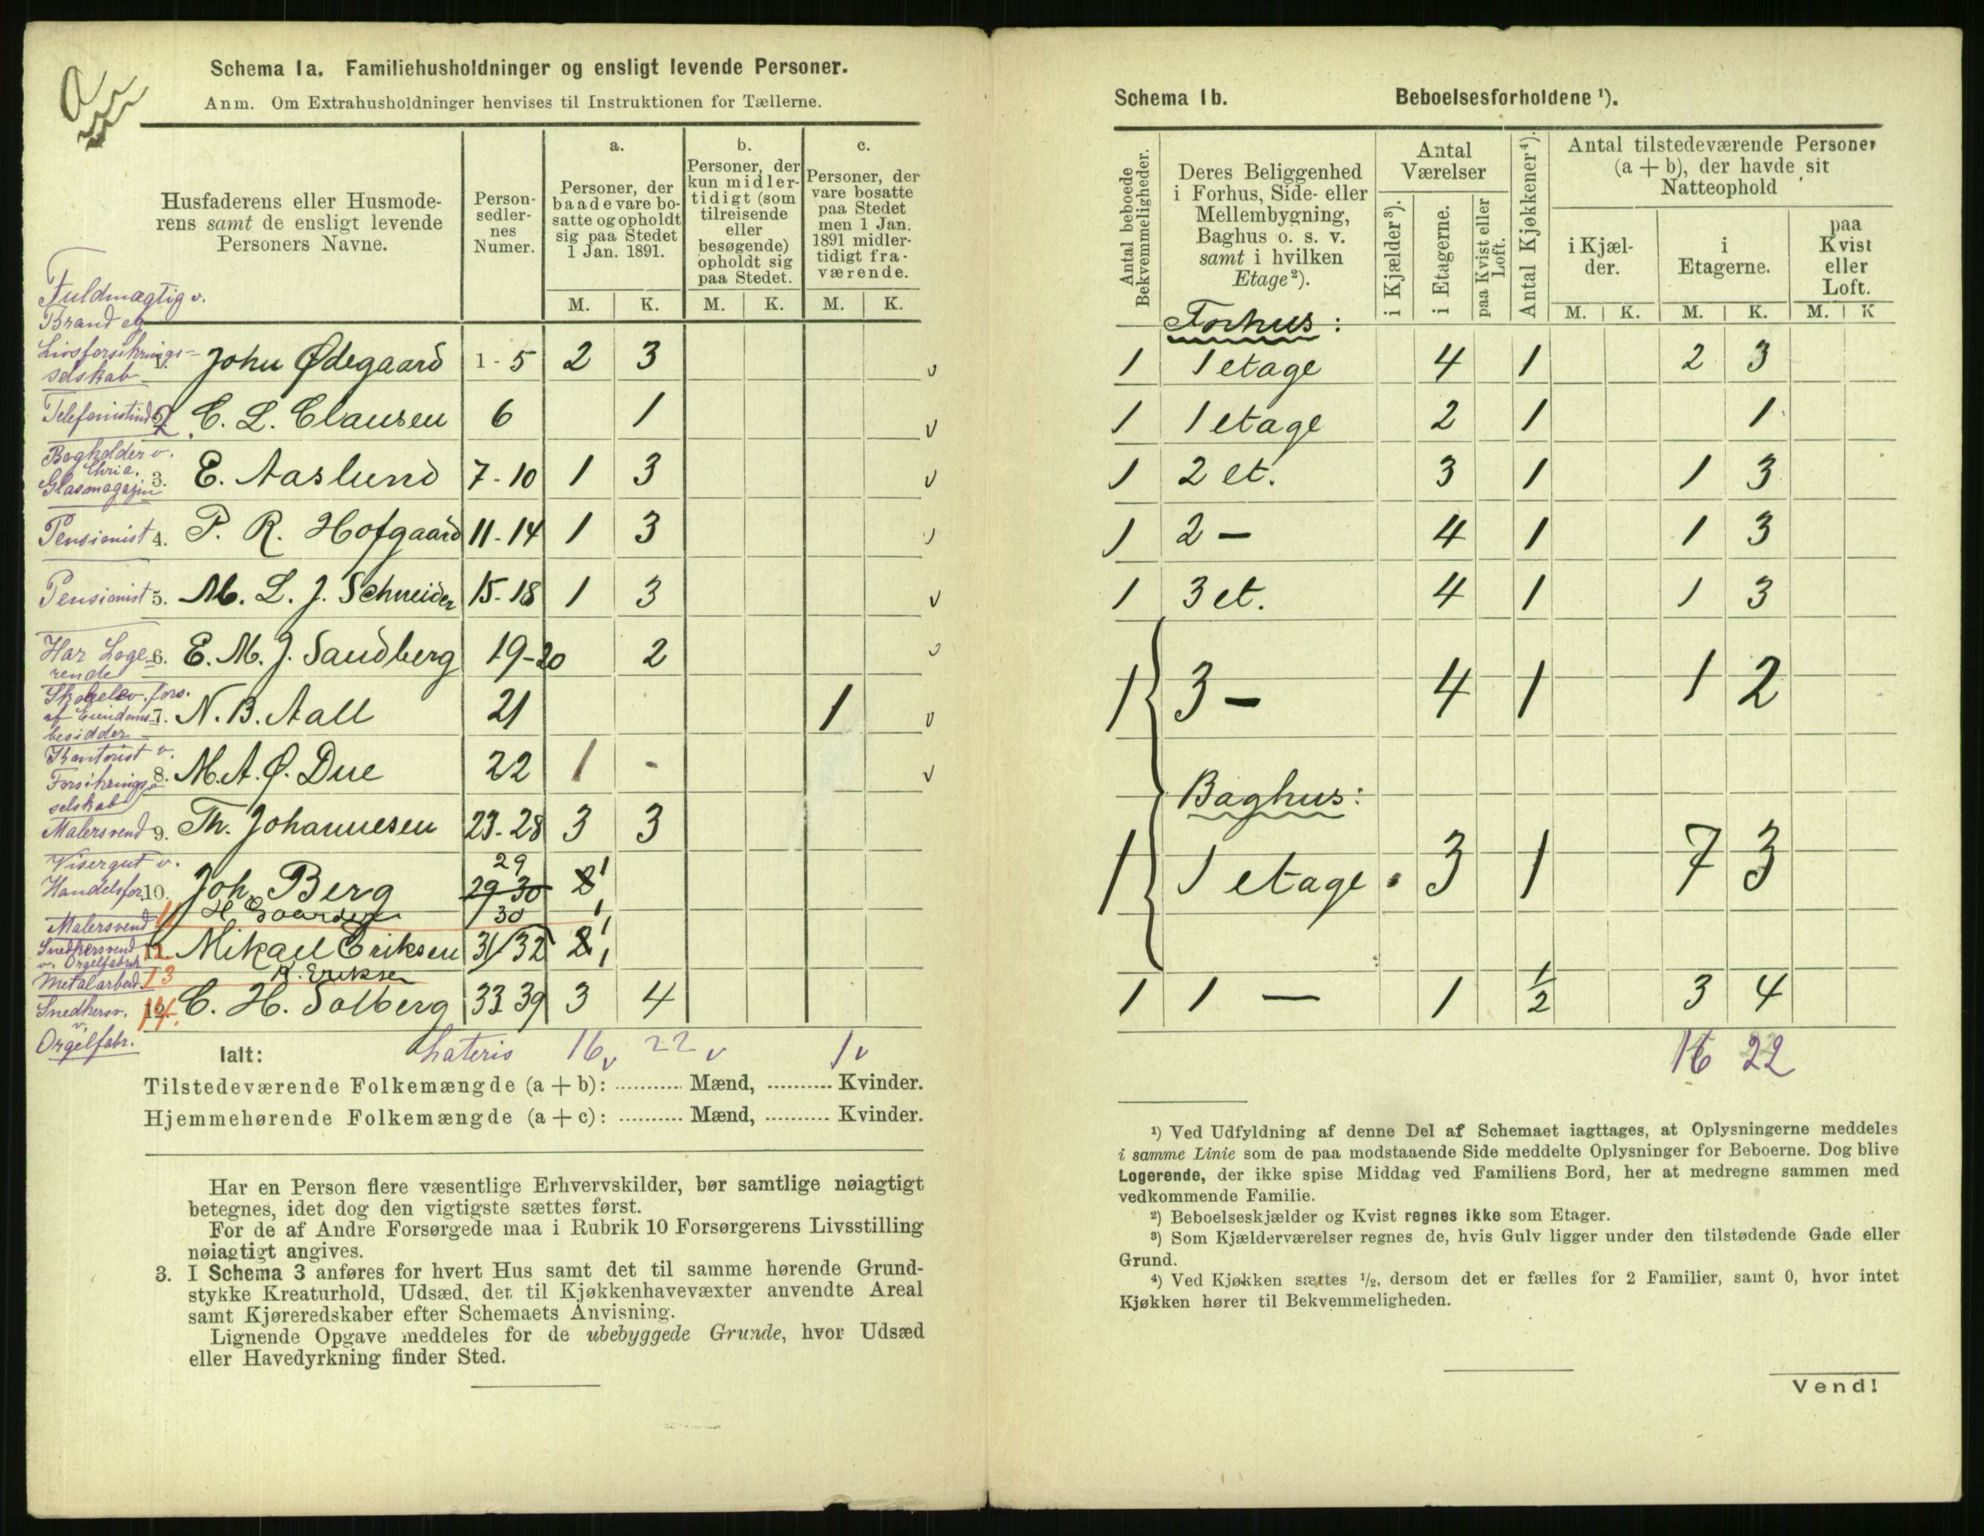 Schema 1a. Familiehusholdninger og ensligt levende Personer.
Anm. Om Extrahusholdninger henvises til Instruktionen for Tællerne.
Husfaderens eller Husmoderens samt de ensligt levende Personers Navne.
Person-sedler-nes Numer.
a. Personer, der baade vare bosatte og opholdt sig paa Stedet 1 Jan. 1891.
b. Personer, der kun midlertidigt (som tilreisende eller besøgende) opholdt sig paa Stedet.
c. Personer, der vare bosatte paa Stedet men 1 Jan. 1891 midlertidigt fraværende.
M. K. M. K. M. K.
Fuldmægtig v. Brand og Livsforsikringsselskab 1. John Ødegaard 1-5 2 3 v
Telefonistinde 2. C. L. Clausen 6 1 v
Bogholder v. Chria. Glasmagazin 3. E. Aaslund 7-10 1 3 v
Pensionist 4. P. R. Hofgaard 11-14 1 3 v
Pensionist 5. M. L. J. Schneider 15-18 1 3 v
Har Logerende 6. E. M. J. Sandberg 19-20 2 v
Skoleelev, fors. af Eiendomsbesidder 7. N. B. Aall 21 1 v
Kontorist v. Forsikringsselskab 8. M. A. Ø. Due 22 1 - v
Malersvend 9. Th. Johannesen 23-28 3 3
Visergut v. Handelsfor. 10. Joh. Berg 29-30 29 2 1
Malersvend 11 30 1
Snedkersvend v. Orgelfabrik 12 Mikael Eriksen 31/32 2 1
Metalarbeid. 13 K. Eriksen 1
Snedkersv. v. Orgelfabr. 14. C. H. Solberg 33 39 3 4
Ialt: Lateris 16 v 22 v 1 v
Tilstedeværende Folkemængde (a + b): .......... Mænd, .......... Kvinder.
Hjemmehørende Folkemængde (a + c): .......... Mænd, .......... Kvinder.
Har en Person flere væsentlige Erhvervskilder, bør samtlige nøiagtigt
betegnes, idet dog den vigtigste sættes først.
For de af Andre Forsørgede maa i Rubrik 10 Forsørgerens Livsstilling
nøiagtigt angives.
3. I Schema 3 anføres for hvert Hus samt det til samme hørende Grund-
stykke Kreaturhold, Udsæd, det til Kjøkkenhavevæxter anvendte Areal
samt Kjøreredskaber efter Schemaets Anvisning.
Lignende Opgave meddeles for de ubebyggede Grunde, hvor Udsæd
eller Havedyrkning finder Sted.
Schema 1b. Beboelsesforholdene ¹).
Antal beboede Bekvemmeligheder.
Deres Beliggenhed i Forhus, Side- eller Mellembygning, Baghus o. s. v. samt i hvilken Etage ²).
Antal Værelser
i Kjælder ³).
i Etagerne.
paa Kvist eller Loft.
Antal Kjøkkener ⁴).
Antal tilstedeværende Personer (a + b), der havde sit Natteophold
i Kjælder.
i Etagerne.
paa Kvist eller Loft.
M. K. M. K. M. K
Forhus:
1 1 etage 4 1 2 3
1 1 etage 2 1 1
1 2 et. 3 1 1 3
1 2 — 4 1 1 3
1 3 et. 4 1 1 3
1 3 — 4 1 1 2
Baghus:
1 1 etage. 3 1 7 3
1 1 — 1 1/2 3 4
16 22
¹) Ved Udfyldning af denne Del af Schemaet iagttages, at Oplysningerne meddeles
i samme Linie som de paa modstaaende Side meddelte Oplysninger for Beboerne. Dog blive
Logerende, der ikke spise Middag ved Familiens Bord, her at medregne sammen med
vedkommende Familie.
²) Beboelseskjælder og Kvist regnes ikke som Etager.
³) Som Kjælderværelser regnes de, hvis Gulv ligger under den tilstødende Gade eller
Grund.
⁴) Ved Kjøkken sættes ½, dersom det er fælles for 2 Familier, samt 0, hvor intet
Kjøkken hører til Bekvemmeligheden.
Vend!